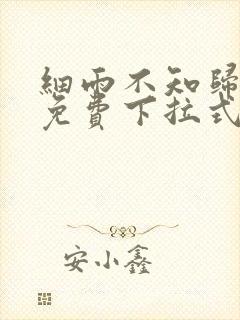 細雨不知歸
免費下拉式
安小鑫